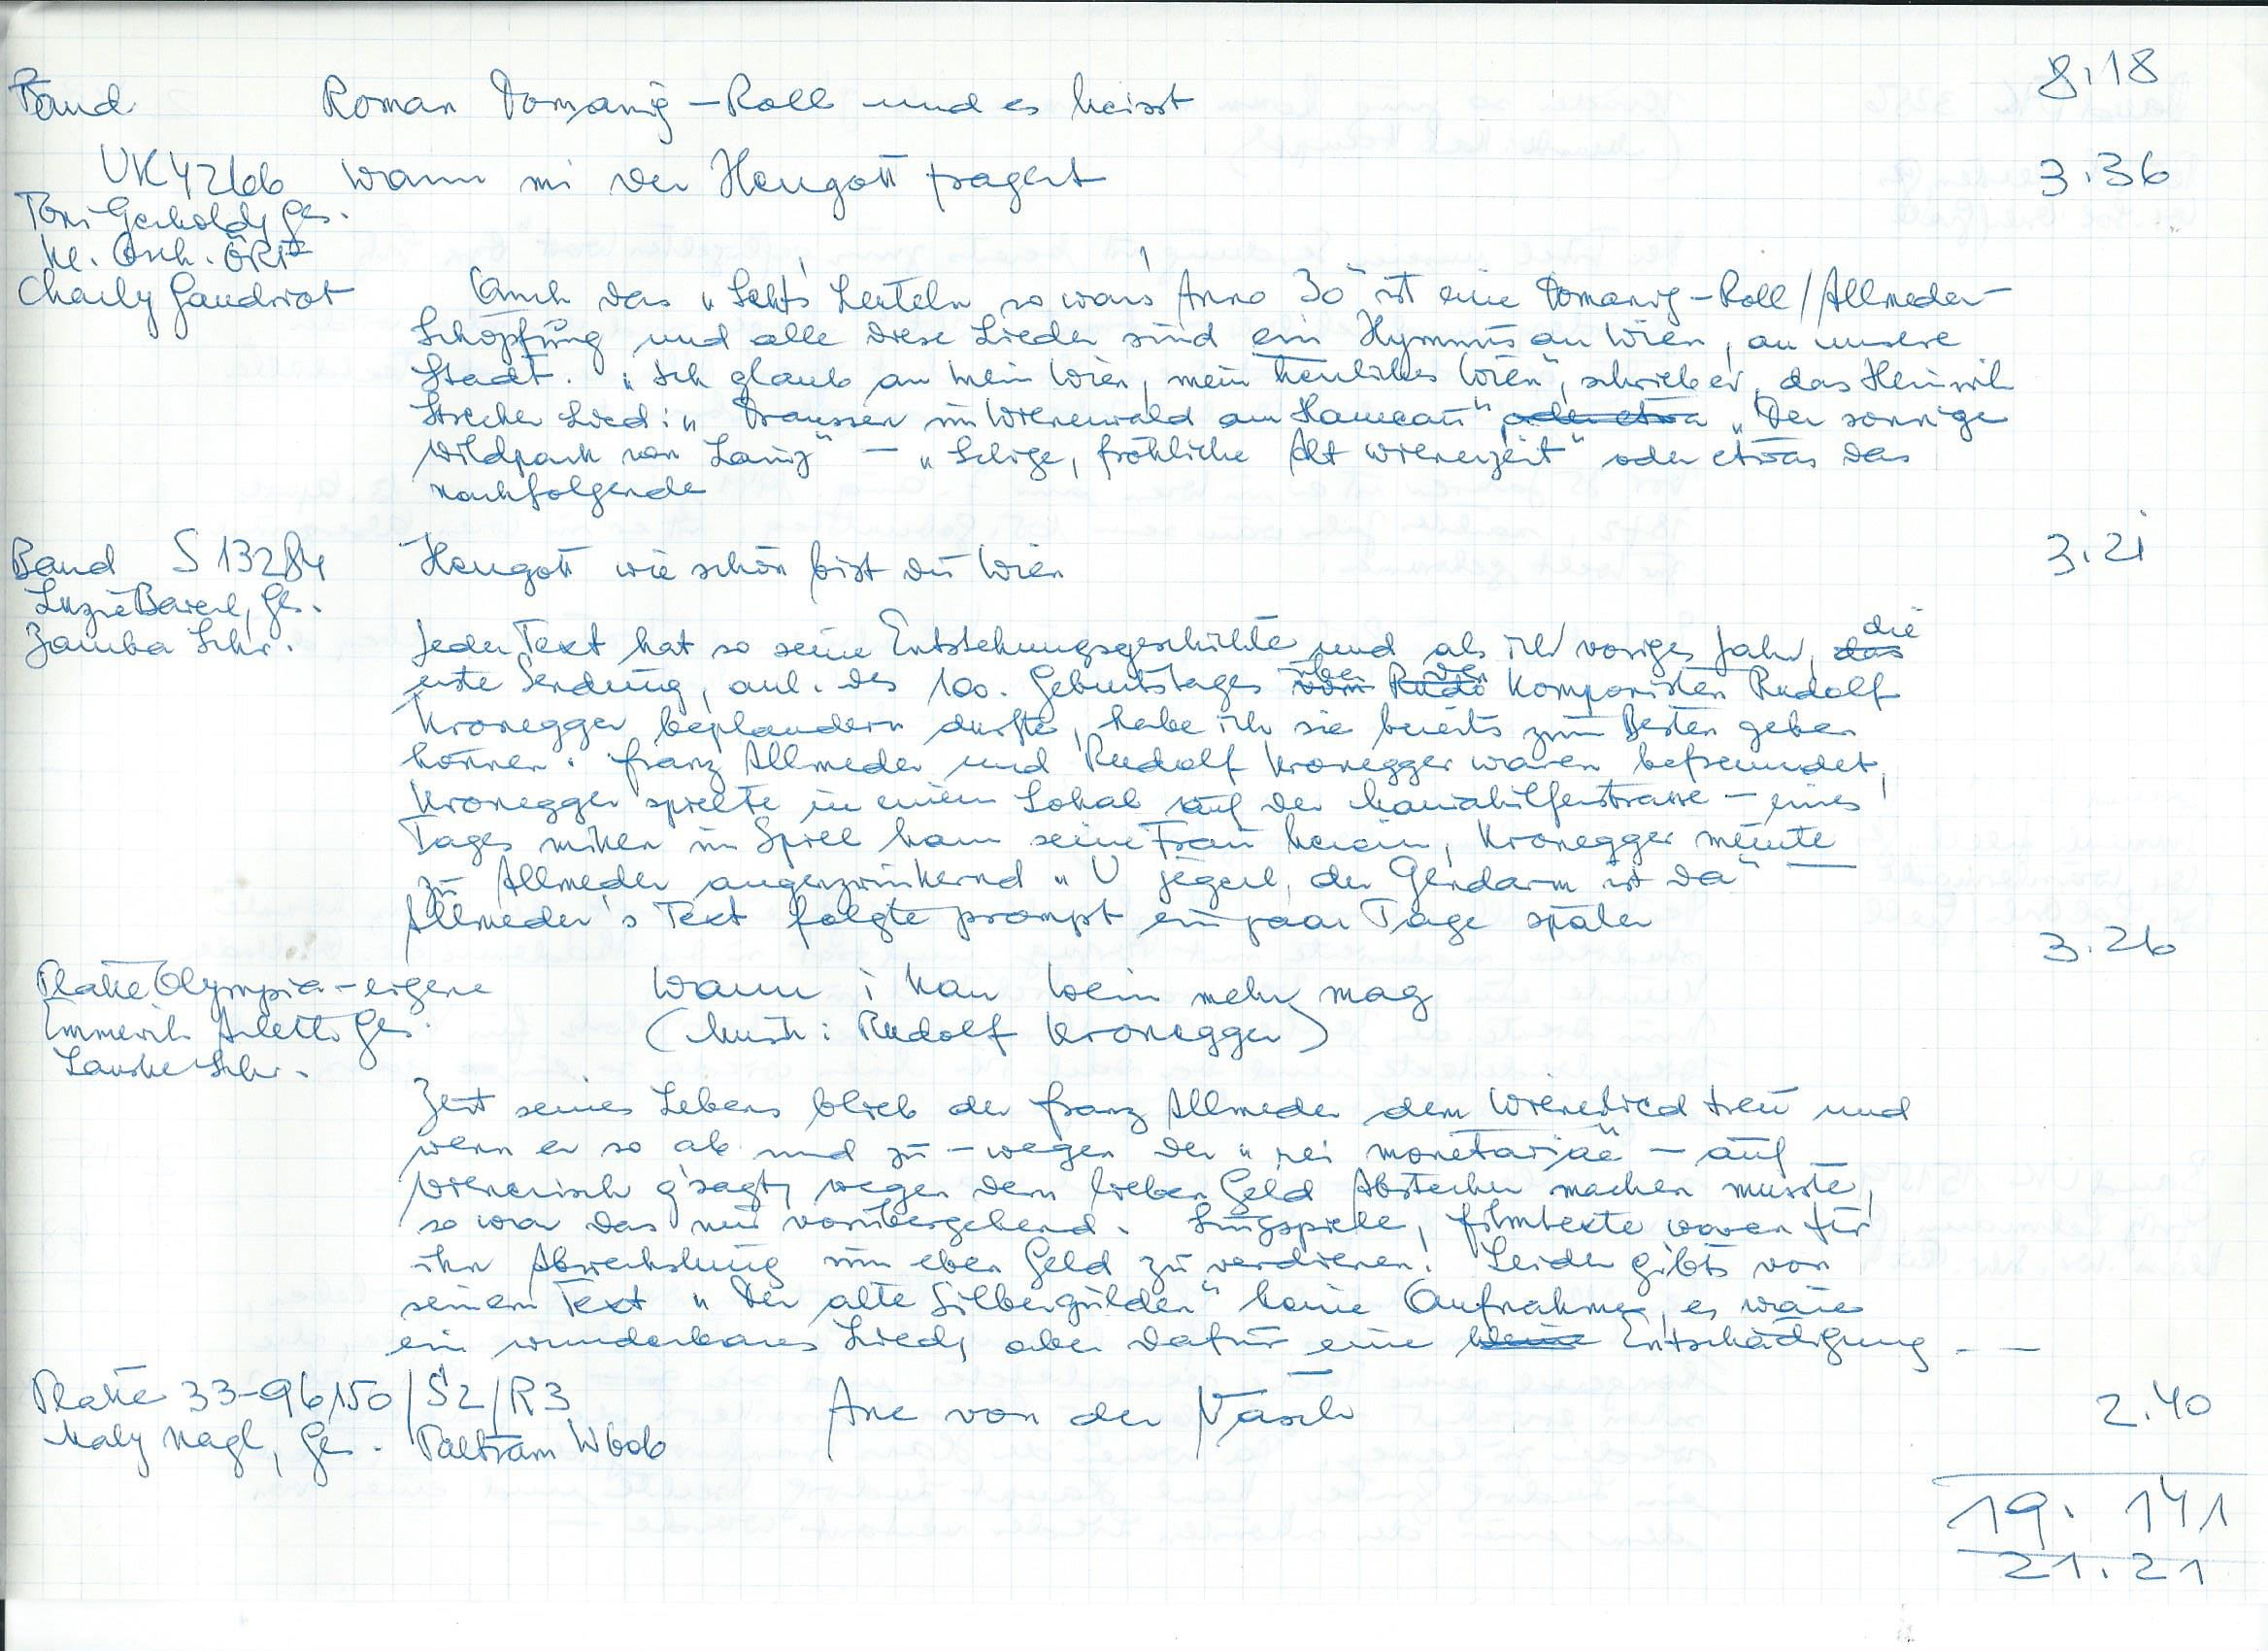 Band Roman Domanig-Roll und es heisst 8.18
UK 4266 Wann mi der Herrgott fragert 3.36
Toni Gerhold, Ges.
Kl. Orch. ÖRF
Charly Gaudriot
Auch das „Sehts Leuteln so wars Anno 30" ist eine Domanig-Roll/Allmeder-
Schöpfung und alle diese Lieder sind ein Hymnus an Wien, an unsere
Stadt. „Ich glaub an mein Wien, mein herrliches Wien", schrieb er, das Heinrich
Strecker Lied: „Draussen im Wienerwald am Hameau" oder etwa „Der sonnige
Wildpark von Lainz" – „Selige, fröhliche Alt Wienerzeit" oder etwas das
nachfolgende
Band S 13284 Herrgott wie schön bist du Wien 3.21
Ges.
Zamba Schr.
Jeder Text hat so seine Entstehungsgeschichte und als ich voriges Jahr, das die
erste Sendung, anl. des 100. Geburtstages vom Rudo über den Komponisten Rudolf
Kronegger beplaudern durfte, habe ich sie bereits zum Besten geben
können. Franz Allmeder und Rudolf Kronegger waren befreundet,
Kronegger spielte in einem Lokal auf der Mariahilferstrasse – eines
Tages mitten im Spiel kam seine Frau herein, Kronegger meinte
zu Allmeder augenzwinkernd „U jegerl, der Gendarm ist da" –
Allmeder's Text folgte prompt ein paar Tage später
3.26
Platte Olympia-eigene Wann i kan Wein mehr mag
Emmerich Arleth Ges. (Musik: Rudolf Kronegger)
Lanske Schr.
Zeit seines Lebens blieb der Franz Allmeder dem Wienerlied treu und
wenn er so ab und zu – wegen der „rei monetariae" – auf
Wienerisch g'sagt, wegen dem lieben Geld Abstecher machen musste,
so war das nur vorübergehend. Singspiele, Filmtexte waren für
ihn Abwechslung um eben Geld zu verdienen. Leider gibts von
seinem Text „Der alte Silbergulden" keine Aufnahme, es wäre
ein wunderbares Lied, aber dafür eine kleine Entschädigung – –
Platte 33-96150/S2/R3 Ane von der Wäsch 2.40
Maly Nagl, Ges. Paltram Wbob
19. 141
21.21